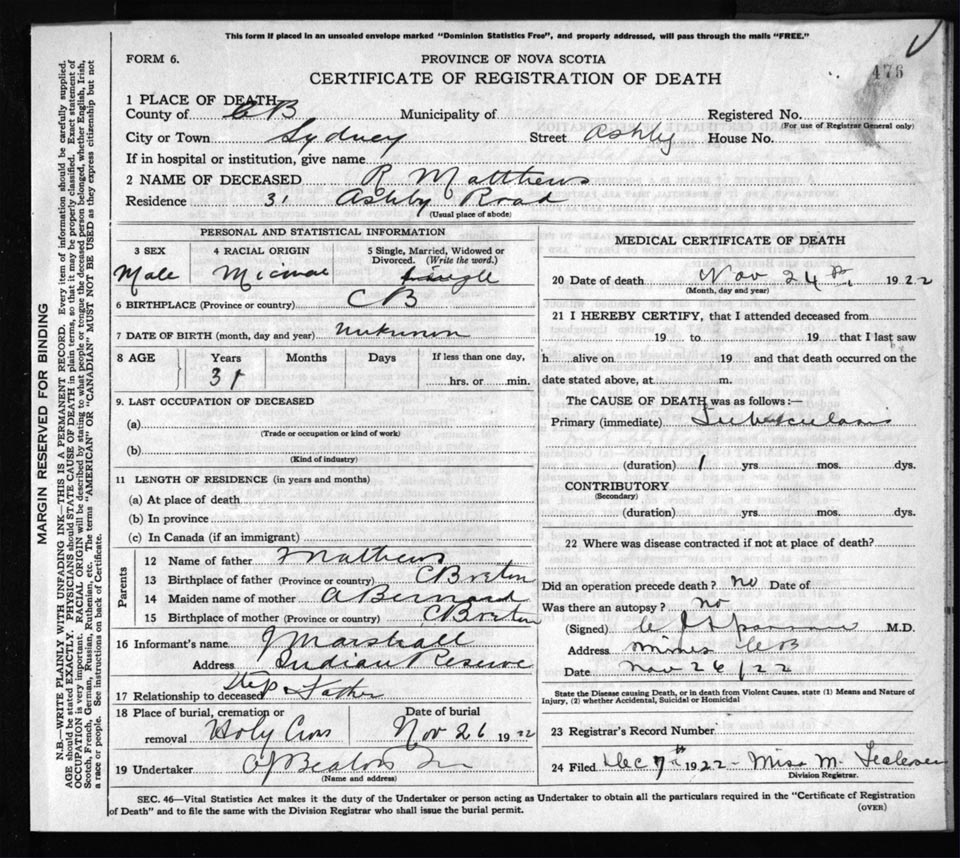 This form if placed in an unsealed envelope marked "Dominion Statistics Free", and properly addressed, will pass through the mails "FREE."
FORM 6.
PROVINCE OF NOVA SCOTIA
476
CERTIFICATE OF REGISTRATION OF DEATH
1 PLACE OF DEATH
County of CB Municipality of Registered No.
(For use of Registrar General only)
City or Town Sydney Street Ashby House No.
If in hospital or institution, give name
2 NAME OF DECEASED R Matthews
Residence 31 Ashby Road
(Usual place of abode)
PERSONAL AND STATISTICAL INFORMATION
3 SEX 4 RACIAL ORIGIN 5 Single, Married, Widowed or Divorced. (Write the word.)
Male Micmac Single
6 BIRTHPLACE (Province or country) CB
7 DATE OF BIRTH (month, day and year) unknown
8 AGE Years Months Days If less than one day,
31 hrs. or min.
9. LAST OCCUPATION OF DECEASED
(a)
(Trade or occupation or kind of work)
(b)
(Kind of industry)
11 LENGTH OF RESIDENCE (in years and months)
(a) At place of death
(b) In province
(c) In Canada (if an immigrant)
Parents
12 Name of father Mathews
13 Birthplace of father (Province or country) CBreton
14 Maiden name of mother A Bernard
15 Birthplace of mother (Province or country) CBreton
16 Informant's name J Marshall
Address Indian Reserve
17 Relationship to deceased Step Father
18 Place of burial, cremation or removal Holy Cross Date of burial Nov 26 1922
19 Undertaker AJ Beaton
(Name and address)
MEDICAL CERTIFICATE OF DEATH
20 Date of death Nov 24th, 1922
(Month, day and year)
21 I HEREBY CERTIFY, that I attended deceased from
19 to 19 that I last saw
h alive on 19 and that death occurred on the
date stated above, at m.
The CAUSE OF DEATH was as follows:—
Primary (immediate) Tuberculosis
(duration) 1 yrs mos. dys.
CONTRIBUTORY
(Secondary)
(duration) yrs. mos. dys.
22 Where was disease contracted if not at place of death?
Did an operation precede death? no Date of
Was there an autopsy? no
(Signed) M.D.
Address CB
Date Nov 26/22
State the Disease causing Death, or in death from Violent Causes, state (1) Means and Nature of
Injury, (2) whether Accidental, Suicidal or Homicidal
23 Registrar's Record Number
24 Filed Dec 7th 1922 - Miss M.
Division Registrar.
SEC. 46—Vital Statistics Act makes it the duty of the Undertaker or person acting as Undertaker to obtain all the particulars required in the "Certificate of Registration
of Death" and to file the same with the Division Registrar who shall issue the burial permit.
(OVER)
MARGIN RESERVED FOR BINDING
N.B.—WRITE PLAINLY WITH UNFADING INK—THIS IS A PERMANENT RECORD. Every item of information should be carefully supplied.
AGE should be stated EXACTLY. PHYSICIANS should STATE CAUSE OF DEATH in plain terms, so that it may be properly classified. Exact statement of
OCCUPATION is very important. RACIAL ORIGIN will be described by stating to what people or tongue the deceased person belonged, whether English, Irish,
Scotch, French, German, Russian, Ruthenian, etc. The terms "AMERICAN" OR "CANADIAN" MUST NOT BE USED as they express citizenship but not
a race or people. See instructions on back of Certificate.